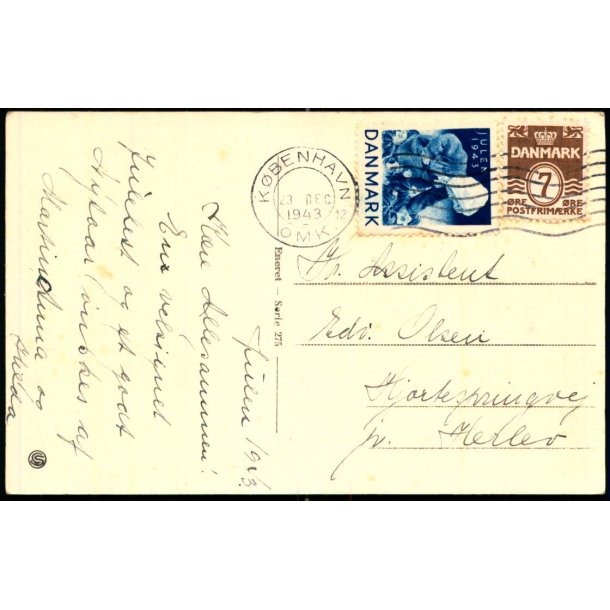 Julen 1943.
Kære Allesammen!
En velsignet
Julefest og et godt
Nytaar ønskes af
Martin Anna og
Hulda
Eneret - Serie 275
KØBENHAVN
23 DEC
1943 12
OMK.
JULEN
1943
DANMARK
DANMARK
7
ØRE ØRE
POSTFRIMÆRKE
Hr. Assistent
Edv. Olsen
Hjortespringvej
pr. Herlev